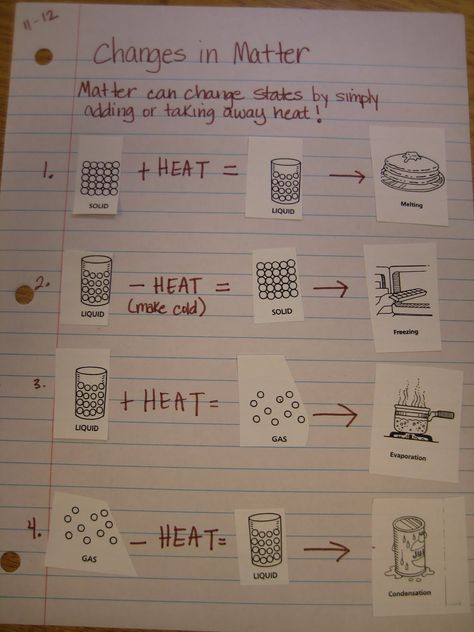 11-12
Changes in Matter
Matter can change states by simply
adding or taking away heat!
1. SOLID + HEAT = LIQUID → Melting
2. LIQUID - HEAT = SOLID → Freezing
(make cold)
3. LIQUID + HEAT = GAS → Evaporation
4. GAS - HEAT = LIQUID → Condensation